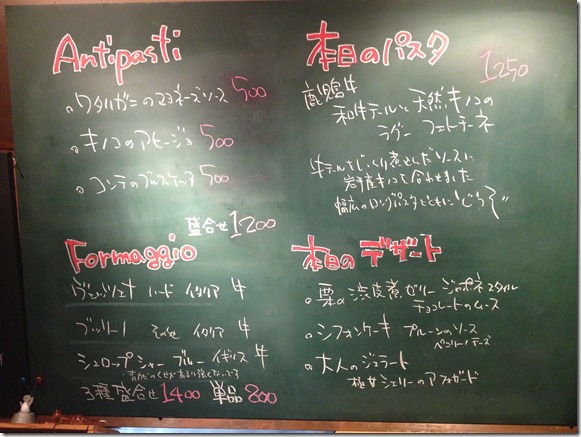 Antipasti
。ワタリガニのマヨネーズソース 500
。キノコのアヒージョ 500
。コンテのブルスケッタ 500
盛合せ 1200
Formaggio
ハード イタリア 牛
その他 イタリア 牛
シュロップシャーブルー イギリス 牛
3種盛合せ 1400 単品 800
本日のパスタ
1250
和牛テールと天然キノコの
ラグー フェットチーネ
牛テールをじっくり煮こんだソースに
岩手産キノコを合わせました
幅広のロングパスタとともにどうぞ
本日のデザート
。栗の渋皮煮ゼリー ジャポネスタイル
チョコレートのムース
。シフォンケーキ プルーンのソース
。大人のジェラート
極甘シェリーのアフォガード